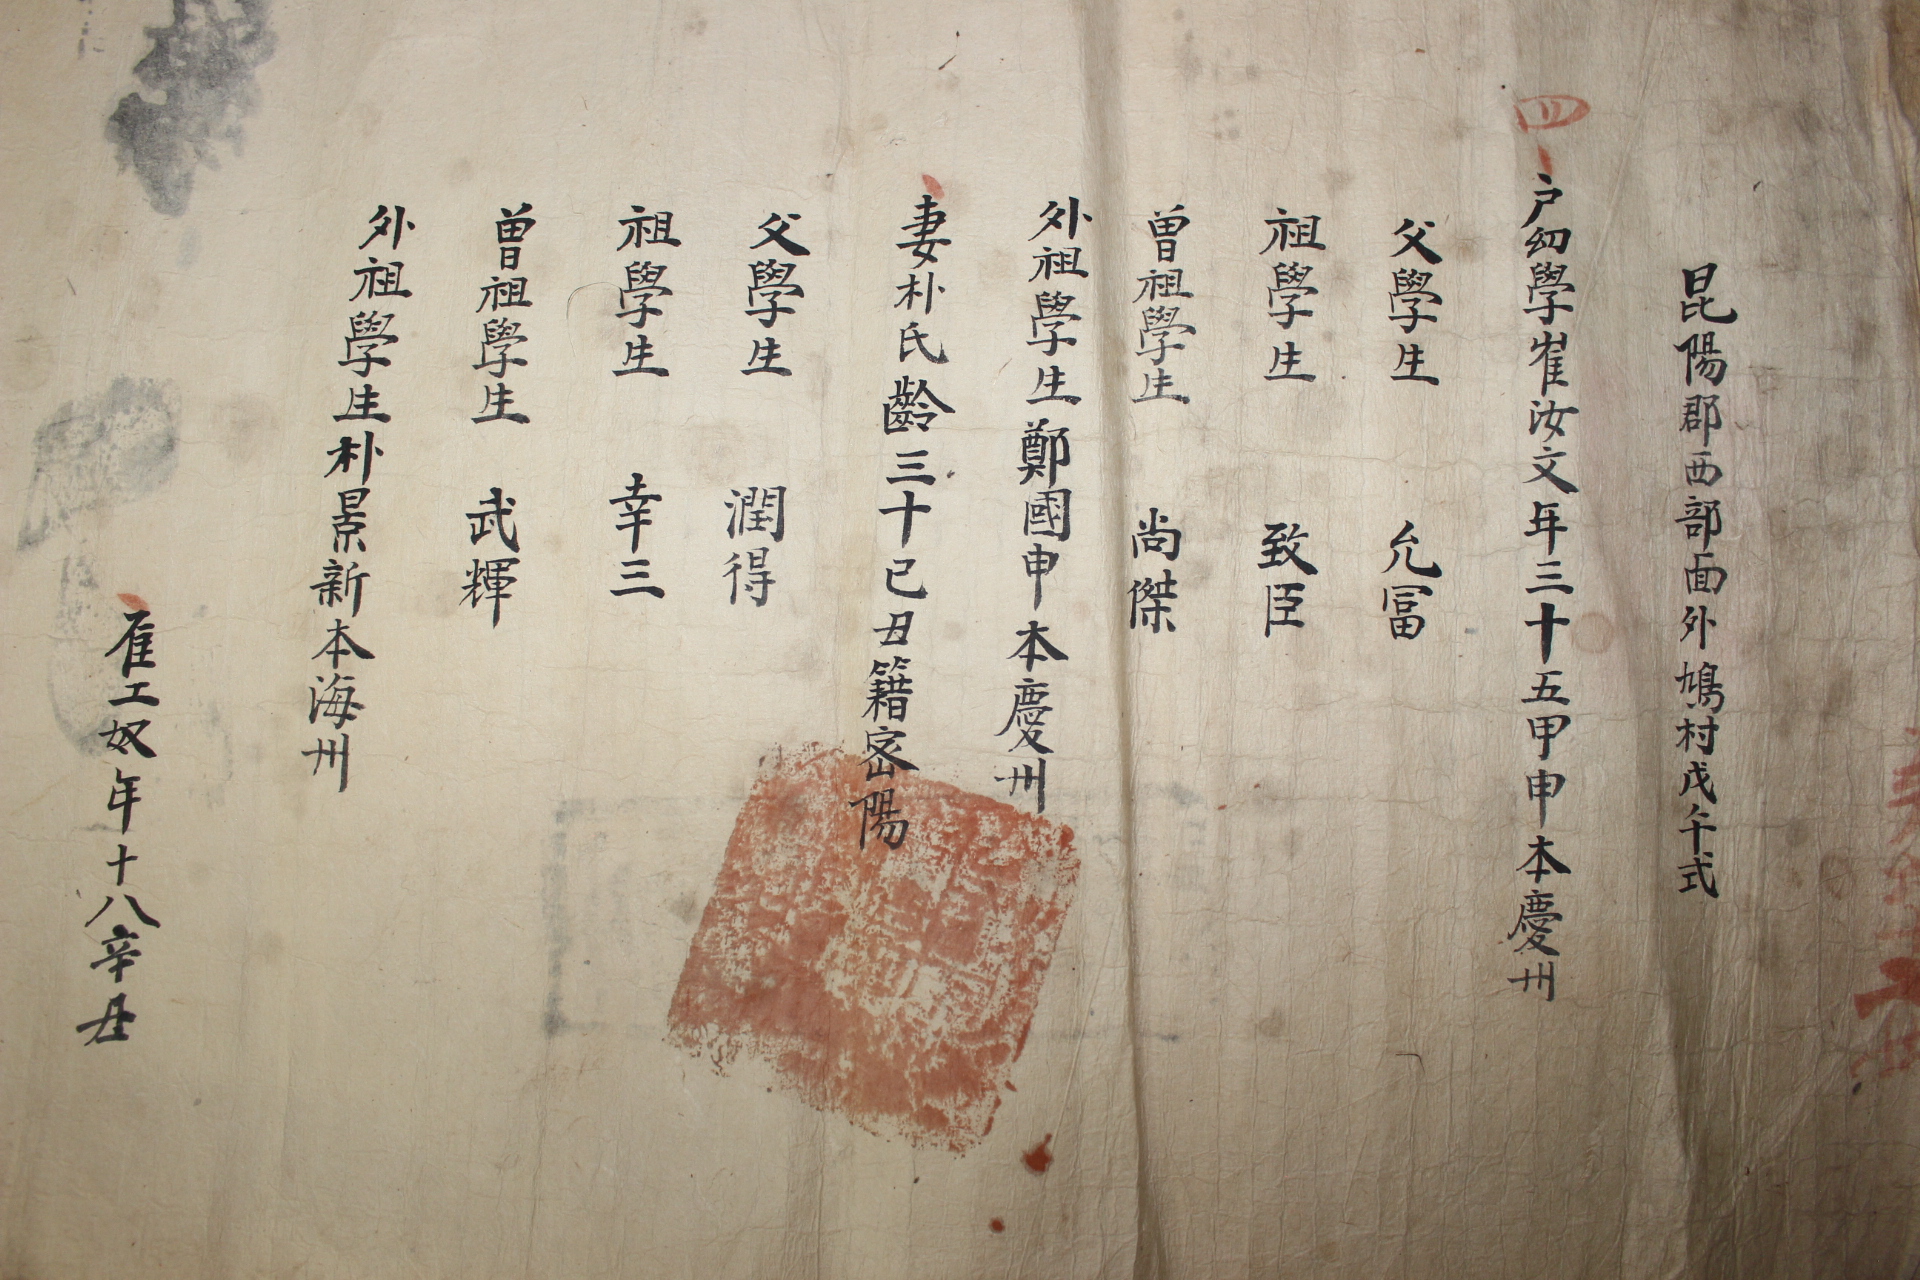 昆陽郡西部面外鳩村戊午式
四
戶幼學崔汝文年三十五甲申本慶州
父學生 允冨
祖學生 致臣
曽祖學生 尚傑
外祖學生鄭國申本慶州
妻朴氏齡三十已丑籍宻陽
父學生 潤得
祖學生 幸三
曽祖學生 武輝
外祖學生朴景新本海州
雇工奴年十八辛丑